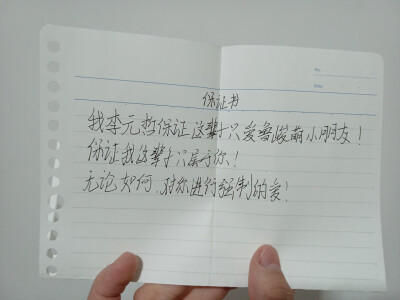 保证书
我李元哲保证这辈子只爱鲁骏萌小朋友！
保证我这辈子只属于你！
无论如何,对你进行强制的爱！